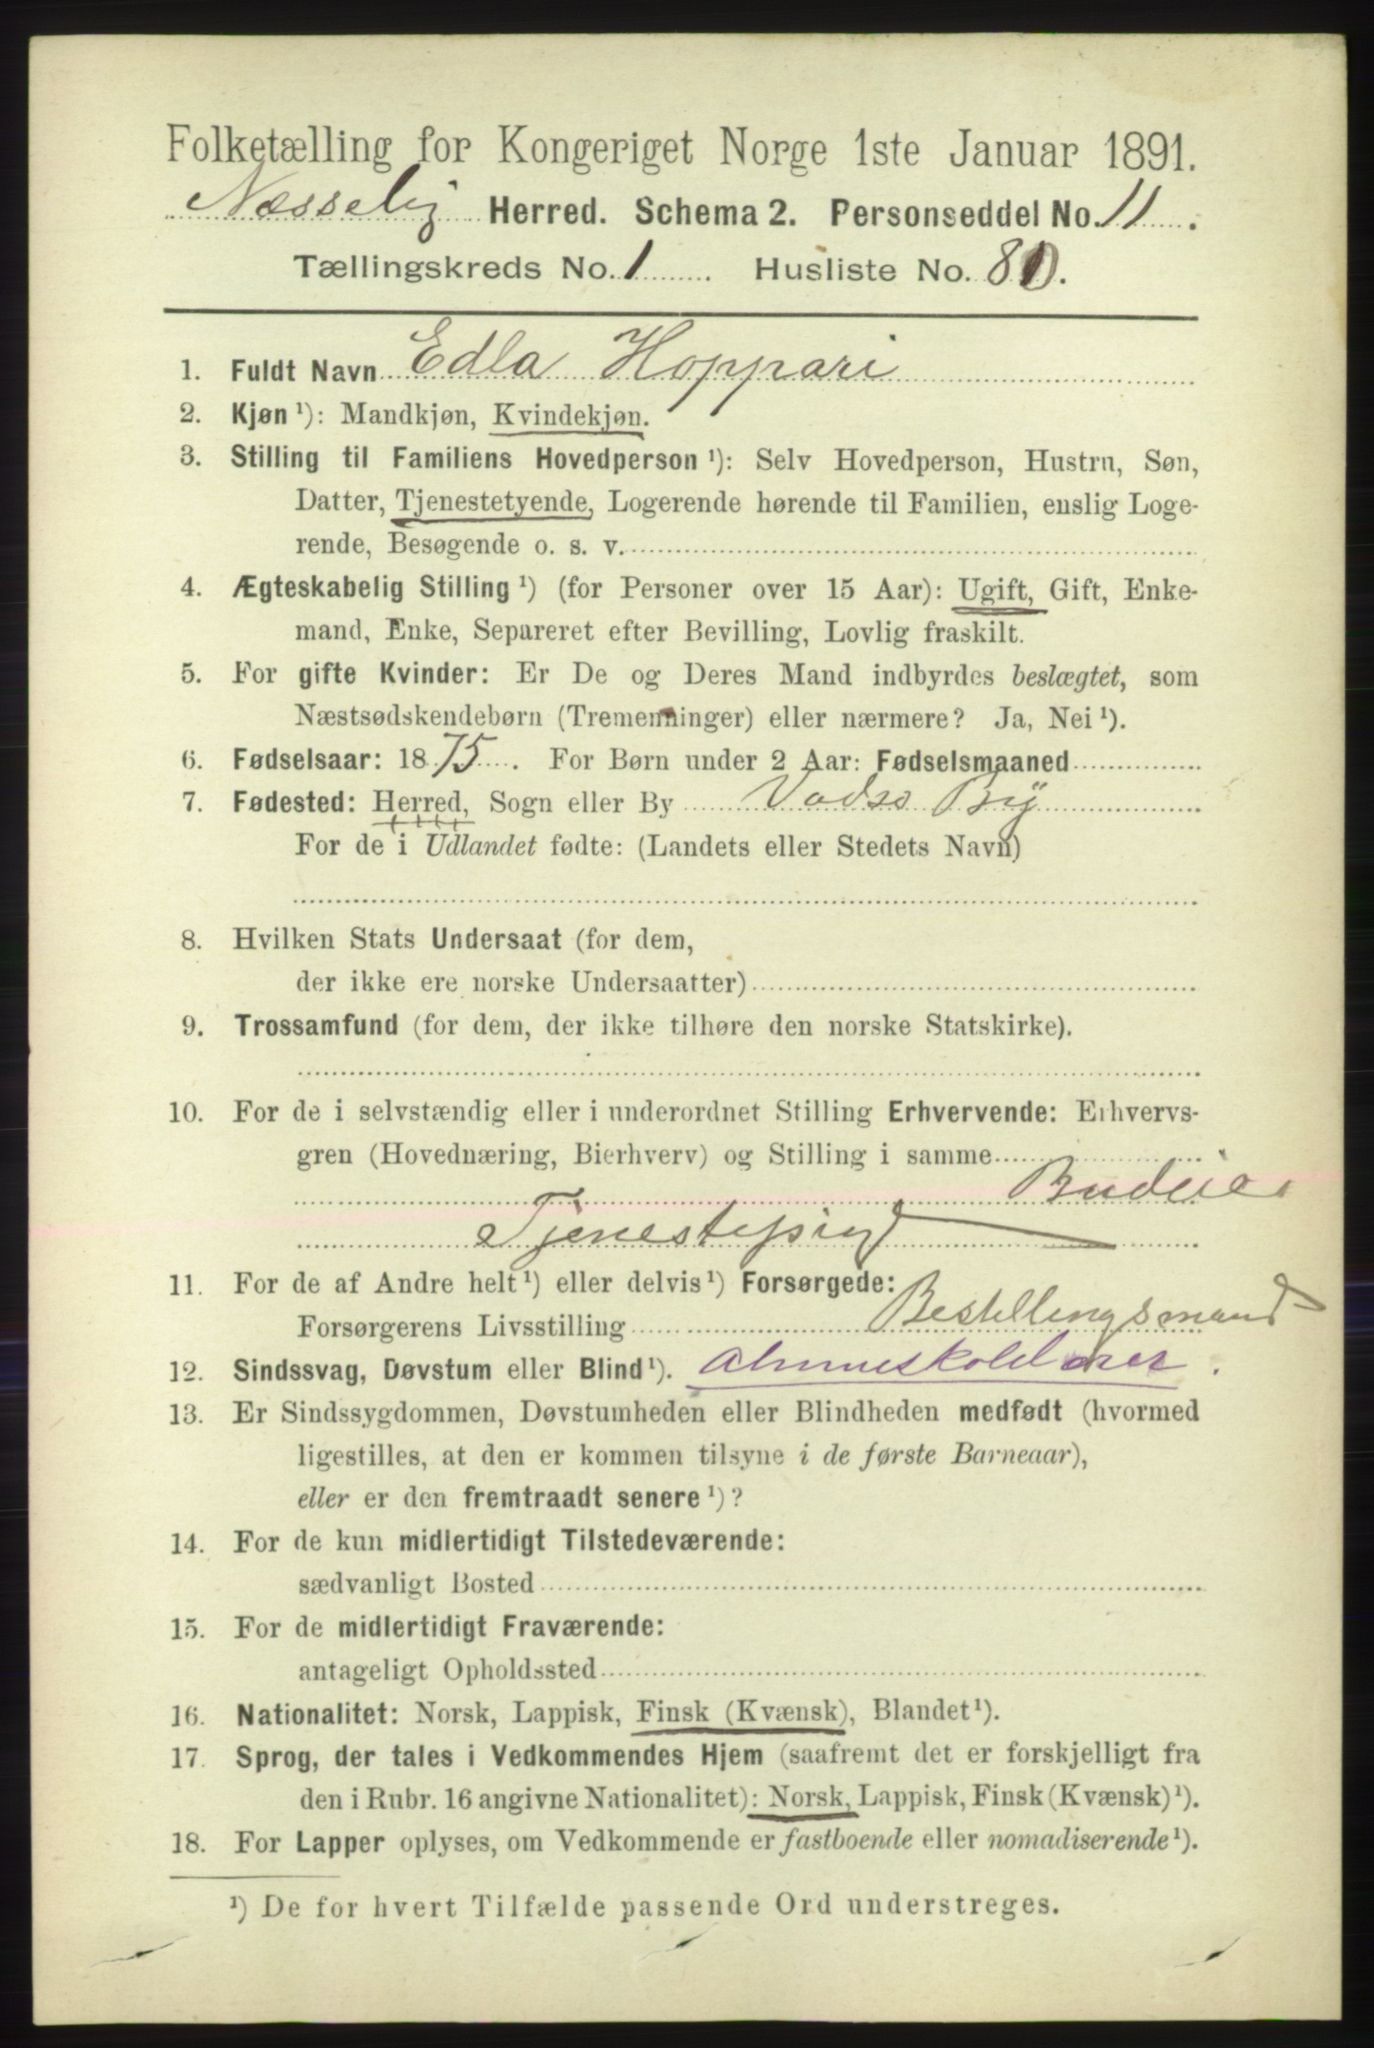 Folketælling for Kongeriget Norge 1ste Januar 1891.
Næsseby Herred. Schema 2. Personseddel No. 11.
Tællingskreds No. 1 Husliste No. 80.
1. Fuldt Navn Edla Hoppari
2. Kjøn ¹): Mandkjøn, Kvindekjøn.
3. Stilling til Familiens Hovedperson ¹): Selv Hovedperson, Hustru, Søn,
Datter, Tjenestetyende, Logerende hørende til Familien, enslig Loge-
rende, Besøgende o. s. v.
4. Ægteskabelig Stilling ¹) (for Personer over 15 Aar): Ugift, Gift, Enke-
mand, Enke, Separeret efter Bevilling, Lovlig fraskilt.
5. For gifte Kvinder: Er De og Deres Mand indbyrdes beslægtet, som
Næstsødskendebørn (Tremenninger) eller nærmere? Ja, Nei ¹).
6. Fødselsaar: 1875. For Børn under 2 Aar: Fødselsmaaned
7. Fødested: Herred, Sogn eller By Vadsø By
For de i Udlandet fødte: (Landets eller Stedets Navn)
8. Hvilken Stats Undersaat (for dem,
der ikke ere norske Undersaatter)
9. Trossamfund (for dem, der ikke tilhøre den norske Statskirke).
10. For de i selvstændig eller i underordnet Stilling Erhvervende: Erhvervs-
gren (Hovednæring, Bierhverv) og Stilling i samme
Budeie
Tjenestepige
11. For de af Andre helt ¹) eller delvis ¹) Forsørgede:
Forsørgerens Livsstilling Bestillingsmand
12. Sindssvag, Døvstum eller Blind ¹).
13. Er Sindssygdommen, Døvstumheden eller Blindheden medfødt (hvormed
ligestilles, at den er kommen tilsyne i de første Barneaar),
eller er den fremtraadt senere ¹)?
14. For de kun midlertidigt Tilstedeværende:
sædvanligt Bosted
15. For de midlertidigt Fraværende:
antageligt Opholdssted
16. Nationalitet: Norsk, Lappisk, Finsk (Kvænsk), Blandet ¹).
17. Sprog, der tales i Vedkommendes Hjem (saafremt det er forskjelligt fra
den i Rubr. 16 angivne Nationalitet): Norsk, Lappisk, Finsk (Kvænsk) ¹).
18. For Lapper oplyses, om Vedkommende er fastboende eller nomadiserende ¹).
¹) De for hvert Tilfælde passende Ord understreges.